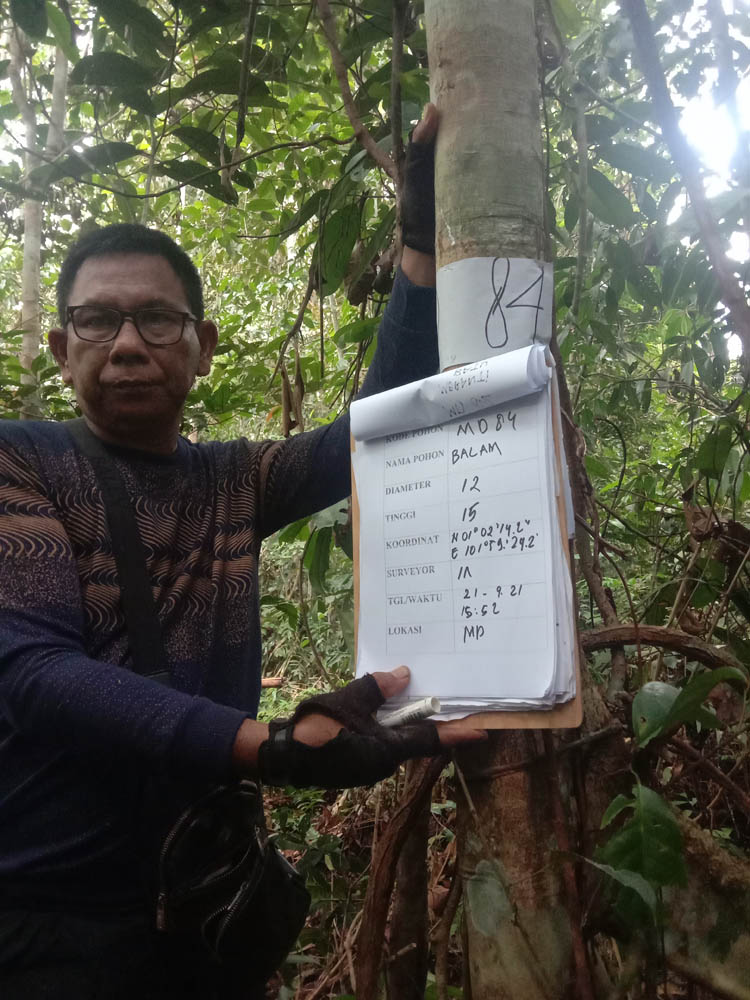 84
KODE POHON MD 84
NAMA POHON BALAM
DIAMETER 12
TINGGI 15
KOORDINAT N 01° 02' 14.2"
E 101° 59' 29.2'
SURVEYOR IR
TGL/WAKTU 21 - 9. 21
15:52
LOKASI MD